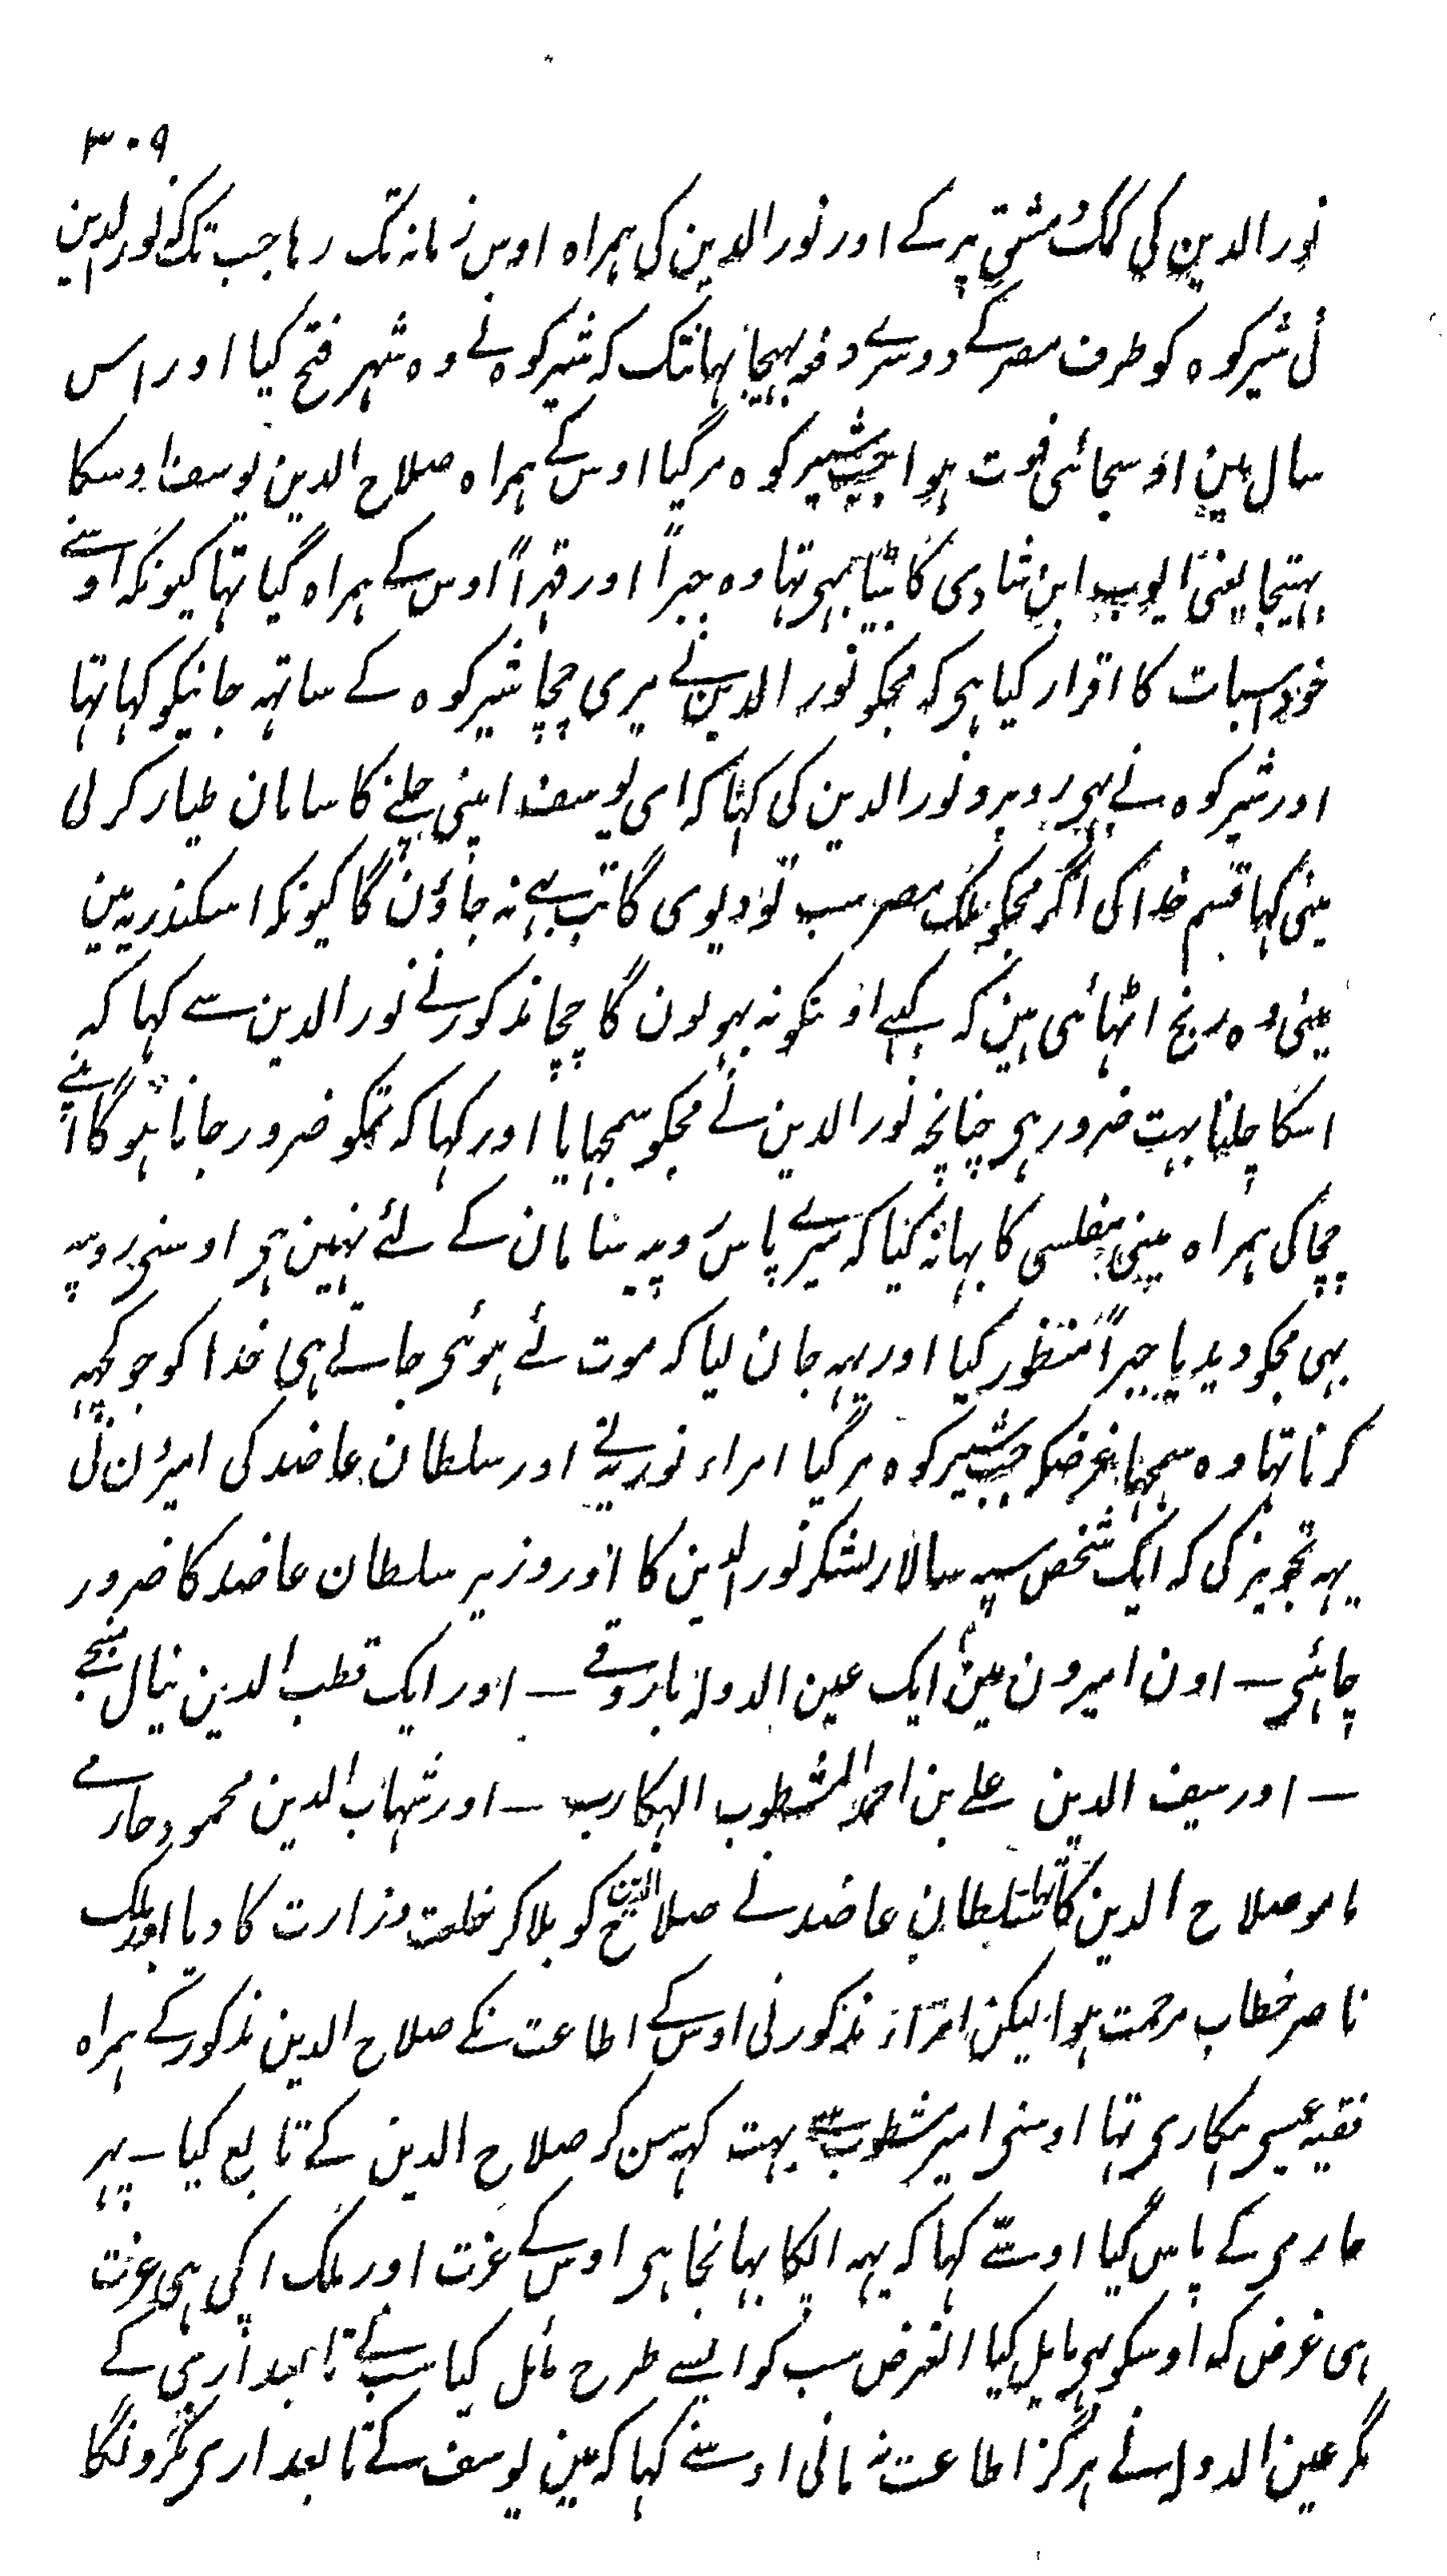 ۳۰۹
نورالدین کی کمک دمشق پر کے اور نورالدین کی ہمراہ اوس زمانہ تک رہا جب تک کہ نورالدین
نی شیرکوہ کو طرف مصر کے دوسرے دفعہ بہیجا یہانتک کہ شیرکوہ نے وہ شہر فتح کیا اور اس
سال مین اوسجائی فوت ہوا جب شیرکوہ مرگیا اوس کے ہمراہ صلاح الدین یوسف اوسکا
بہتیجا یعنی ایوب ابن شادی کا بیٹا بہی تہا وہ جبراً اور قہراً اوس کے ہمراہ گیا تہا کیونکہ اوسنے
خود اسبات کا اقرار کیا ہی کہ مجکو نور الدین نے میری چچا شیرکوہ کے ساتہہ جانیکو کہا تہا
اور شیرکوہ نے بہی روبرو نورالدین کی کہا کہ ای یوسف اپنی چلنے کا سامان طیار کر لی
مینی کہا قسم خدا کی اگر مجکو ملک مصر سب تو دیوی گا تب بہی نہ جاؤن گا کیونکہ اسکندریہ مین
مینی وہ رنج اٹہائی ہین کہ کبہی اونکو نہ بہولون گا چچا مذکور نے نور الدین سے کہا کہ
اسکا چلنا بہت ضرور ہی چنانچہ نورالدین نے مجکو سمجہایا اور کہا کہ تمکو ضرور جانا ہوگا اپنے
چچا کی ہمراہ مینی مفلسی کا بہانہ کیا کہ میرے پاس روپیہ سامان کے لئے نہین ہی اوسنی روپیہ
بہی مجکو دیدیا جبراً منظور کیا اور یہہ جان لیا کہ موت لئے ہوئی جاتے ہی خدا کو جو کچہہ
کرنا تہا وہ سمجہا غرضکہ جب شیرکوہ مرگیا امراء نوریہ نے اور سلطان عاضد کی امیرون نی
یہہ تجویز کی کہ ایک شخص سپہ سالار لشکر نور الدین کا اور وزیر سلطان عاضد کا ضرور
چاہئی ــ اون امیرون مین ایک عین الدولہ یاروقے ــ اور ایک قطب الدین نیال منبجے
ــ اور سیف الدین علے بن احمد المشطوب الہکاری ــ اور شہاب الدین محمود حارمے
مامو صلاح الدین کا تہا سلطان عاضد نے صلاح الدین کو بلا کر خلعت وزارت کا دیا اور ملک
ناصر خطاب مرحمت ہوا لیکن امراء مذکور نی اوس کے اطاعت نکے صلاح الدین مذکور کے ہمراہ
فقیہ عیسی ہکاری تہا اوسنی امیر مشطوب سے بہت کہہ سن کر صلاح الدین کے تابع کیا ــ پہر
حارمی کے پاس گیا اوسے کہا کہ یہہ اپکا بہانجا ہی اوس کے عزت اور ملک اپکی ہی عزت
ہی غرض کہ اوسکو بہی مایل کیا الغرض سب کو ایسے طرح مائل کیا سب نے تابعداری کے
مگر عین الدولہ نے ہرگز اطاعت نہ مانی اوسنے کہا کہ مین یوسف کے تابعداری نکرونگا